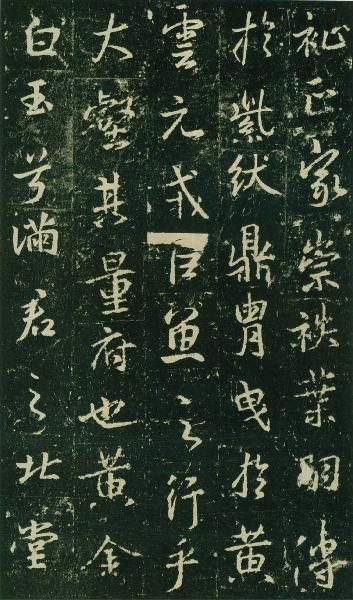 祉正家崇祑葉嗣傳
於紫紱鼎胄曳於黃
雲元戎巨魚之行乎
大壑其量府也黃金
白玉兮滿君之北堂